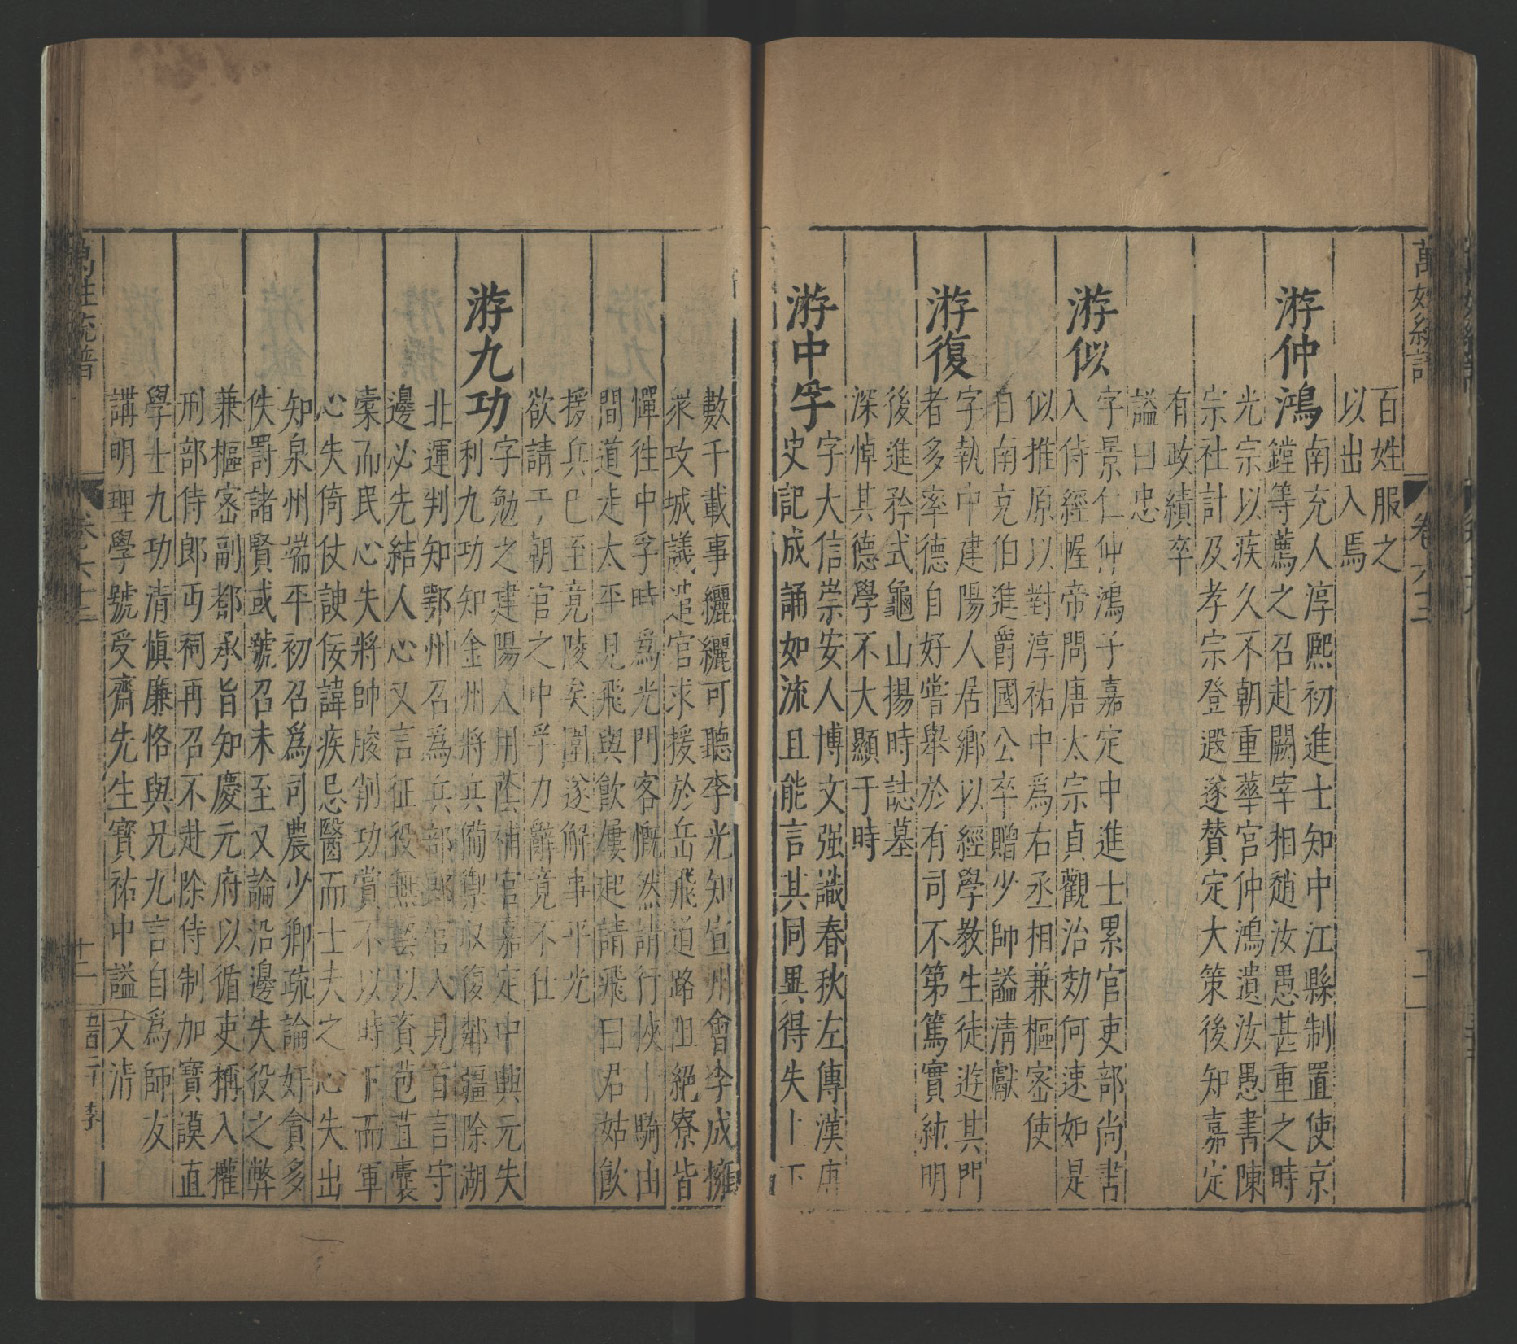 百姓服之
以出入焉
游仲鴻南充人淳熙初進士知中江縣制置使京
鏜等薦之召赴闕宰相趙汝愚甚重之時
光宗以疾久不朝重華宮仲鴻遺汝愚書陳
宗社計及孝宗登遐遂賛定大策後知嘉定
有政績卒
謚曰忠
游似字景仁仲鴻子嘉定中進士累官吏部尚書
入侍經幄帝問唐太宗貞觀治効何速如是
似推原以對淳祐中爲右丞相兼樞密使
自南克伯進爵國公卒贈少師謚清獻
游復字執中建陽人居鄉以經學教生徒遊其門
者多率德自好嘗舉於有司不第篤實純明
後進矜式龜山揚時誌墓
深悼其德學不大顯于時
游中孚字大信崇安人博文强識春秋左傳漢唐
史記成誦如流且能言其同異得失上下
數千載事纚纚可聽李光知宣州會李成擁
衆攻城議遣官求援於岳飛道路阻絕寮皆
憚徃中孚時爲光門客慨然請行挾十騎由
間道走太平見飛與飮屢起請飛曰君姑飮
援兵已至竟陵矣圍遂解事平光
欲請于朝官之中孚力辭竟不仕
游九功字勉之建陽人用蔭補官嘉定中興元失
利九功知金州將兵備禦収復鄰疆除湖
北運判知鄂州召爲兵部郎官入見首言守
邊必先結人心又言征役無藝以資苞苴囊
橐而民心失將帥朘削功賞不以時下而軍
心失倚仗諛佞諱疾忌醫而士夫之心失出
知泉州端平初召爲司農少卿疏論奸貪多
佚罰諸賢或號召未至又論沿邊失役之弊
兼樞密副都承旨知慶元府以循吏稱入權
刑部侍郎丐祠再召不赴除侍制加寶謨直
學士九功清愼廉恪與兄九言自爲師友
講明理學號受齋先生寶祐中謚文清
萬姓統譜
卷六十三
十二